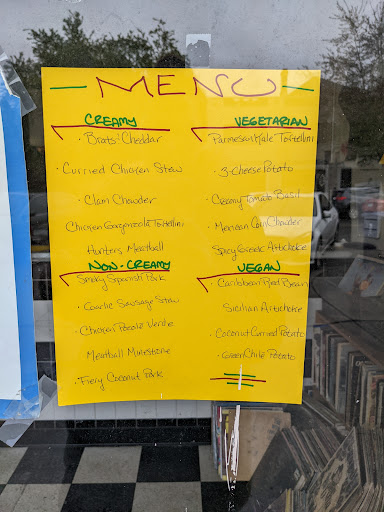 MENU
CREAMY
· Brats' Cheddar
· Curried Chicken Stew
· Clam Chowder
Chicken Gorgonzola Tortellini
Hunters Meatball
NON-CREAMY
Smoky Spanish Pork
· Garlic Sausage Stew
· Chicken Potato Verde
Meatball Minestrone
· Fiery Coconut Pork
VEGETARIAN
Parmesan Kale Tortellini
· 3-Cheese Potato
· Creamy Tomato Basil
· Mexican Corn Chowder
Spicy Greek Artichoke
VEGAN
· Caribbean Red Bean
Sicilian Artichoke
· Coconut Curried Potato
· Green Chile Potato